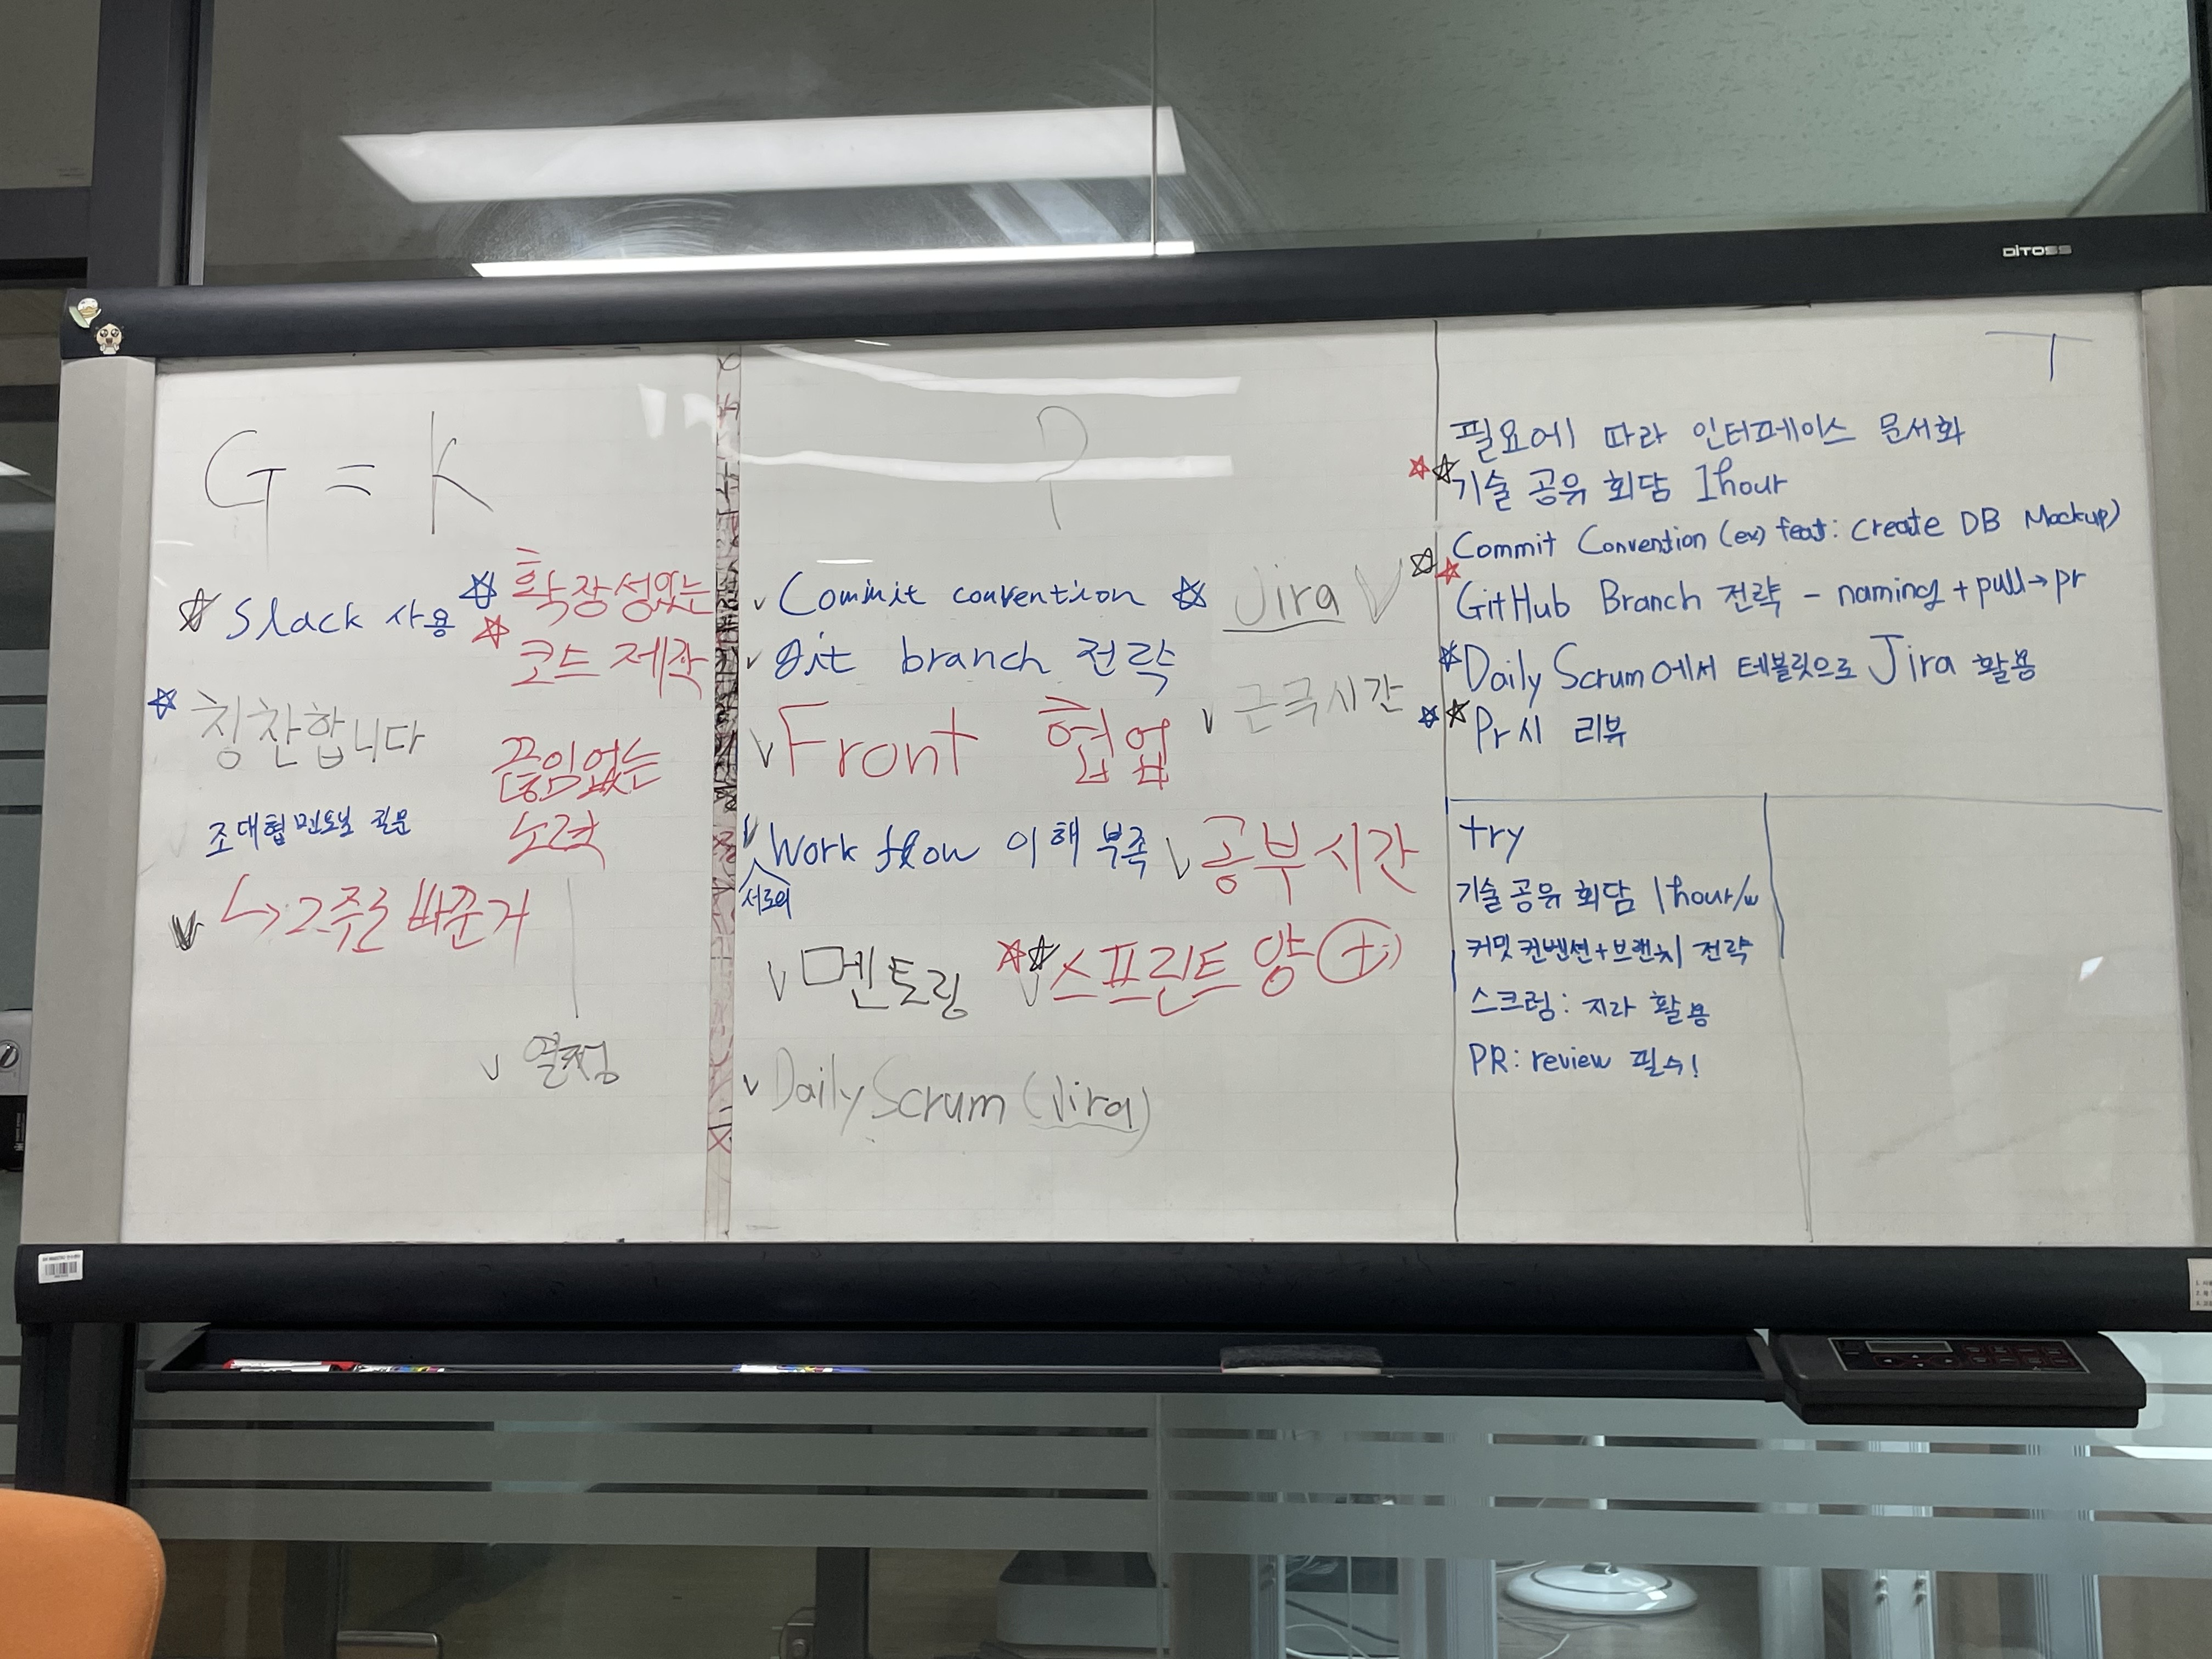 DITOSS
G = K
Slack 사용
확장성있는
코드 제작
칭찬합니다
끊임없는
노력
조대협 멘토님 질문
↳ 2주로 바꾼거
열정
P
Commit convention
Jira
Git branch 전략
Front 협업
근국시간
Work flow 이해 부족
서로의
공부시간
멘토링
스프린트 양 +
Daily Scrum (Jira)
T
필요에 따라 인터페이스 문서화
기술 공유 회담 1hour
Commit Convention (ex) feat: Create DB Mockup)
GitHub Branch 전략 - naming + pull→pr
Daily Scrum에서 테블릿으로 Jira 활용
Pr시 리뷰
try
기술 공유 회담 1hour/w
커밋 컨벤션+브랜치 전략
스크럼: 지라 활용
PR: review 필수!